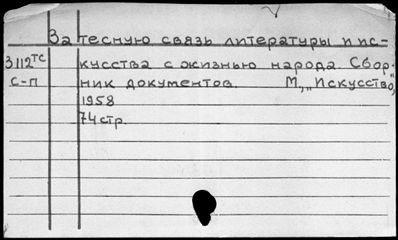 За тесную связь литературы и ис-
3112тс кусства с жизнью народа. Сбор-
с-п ник документов. М, „Искусство,"
1958
74 стр.